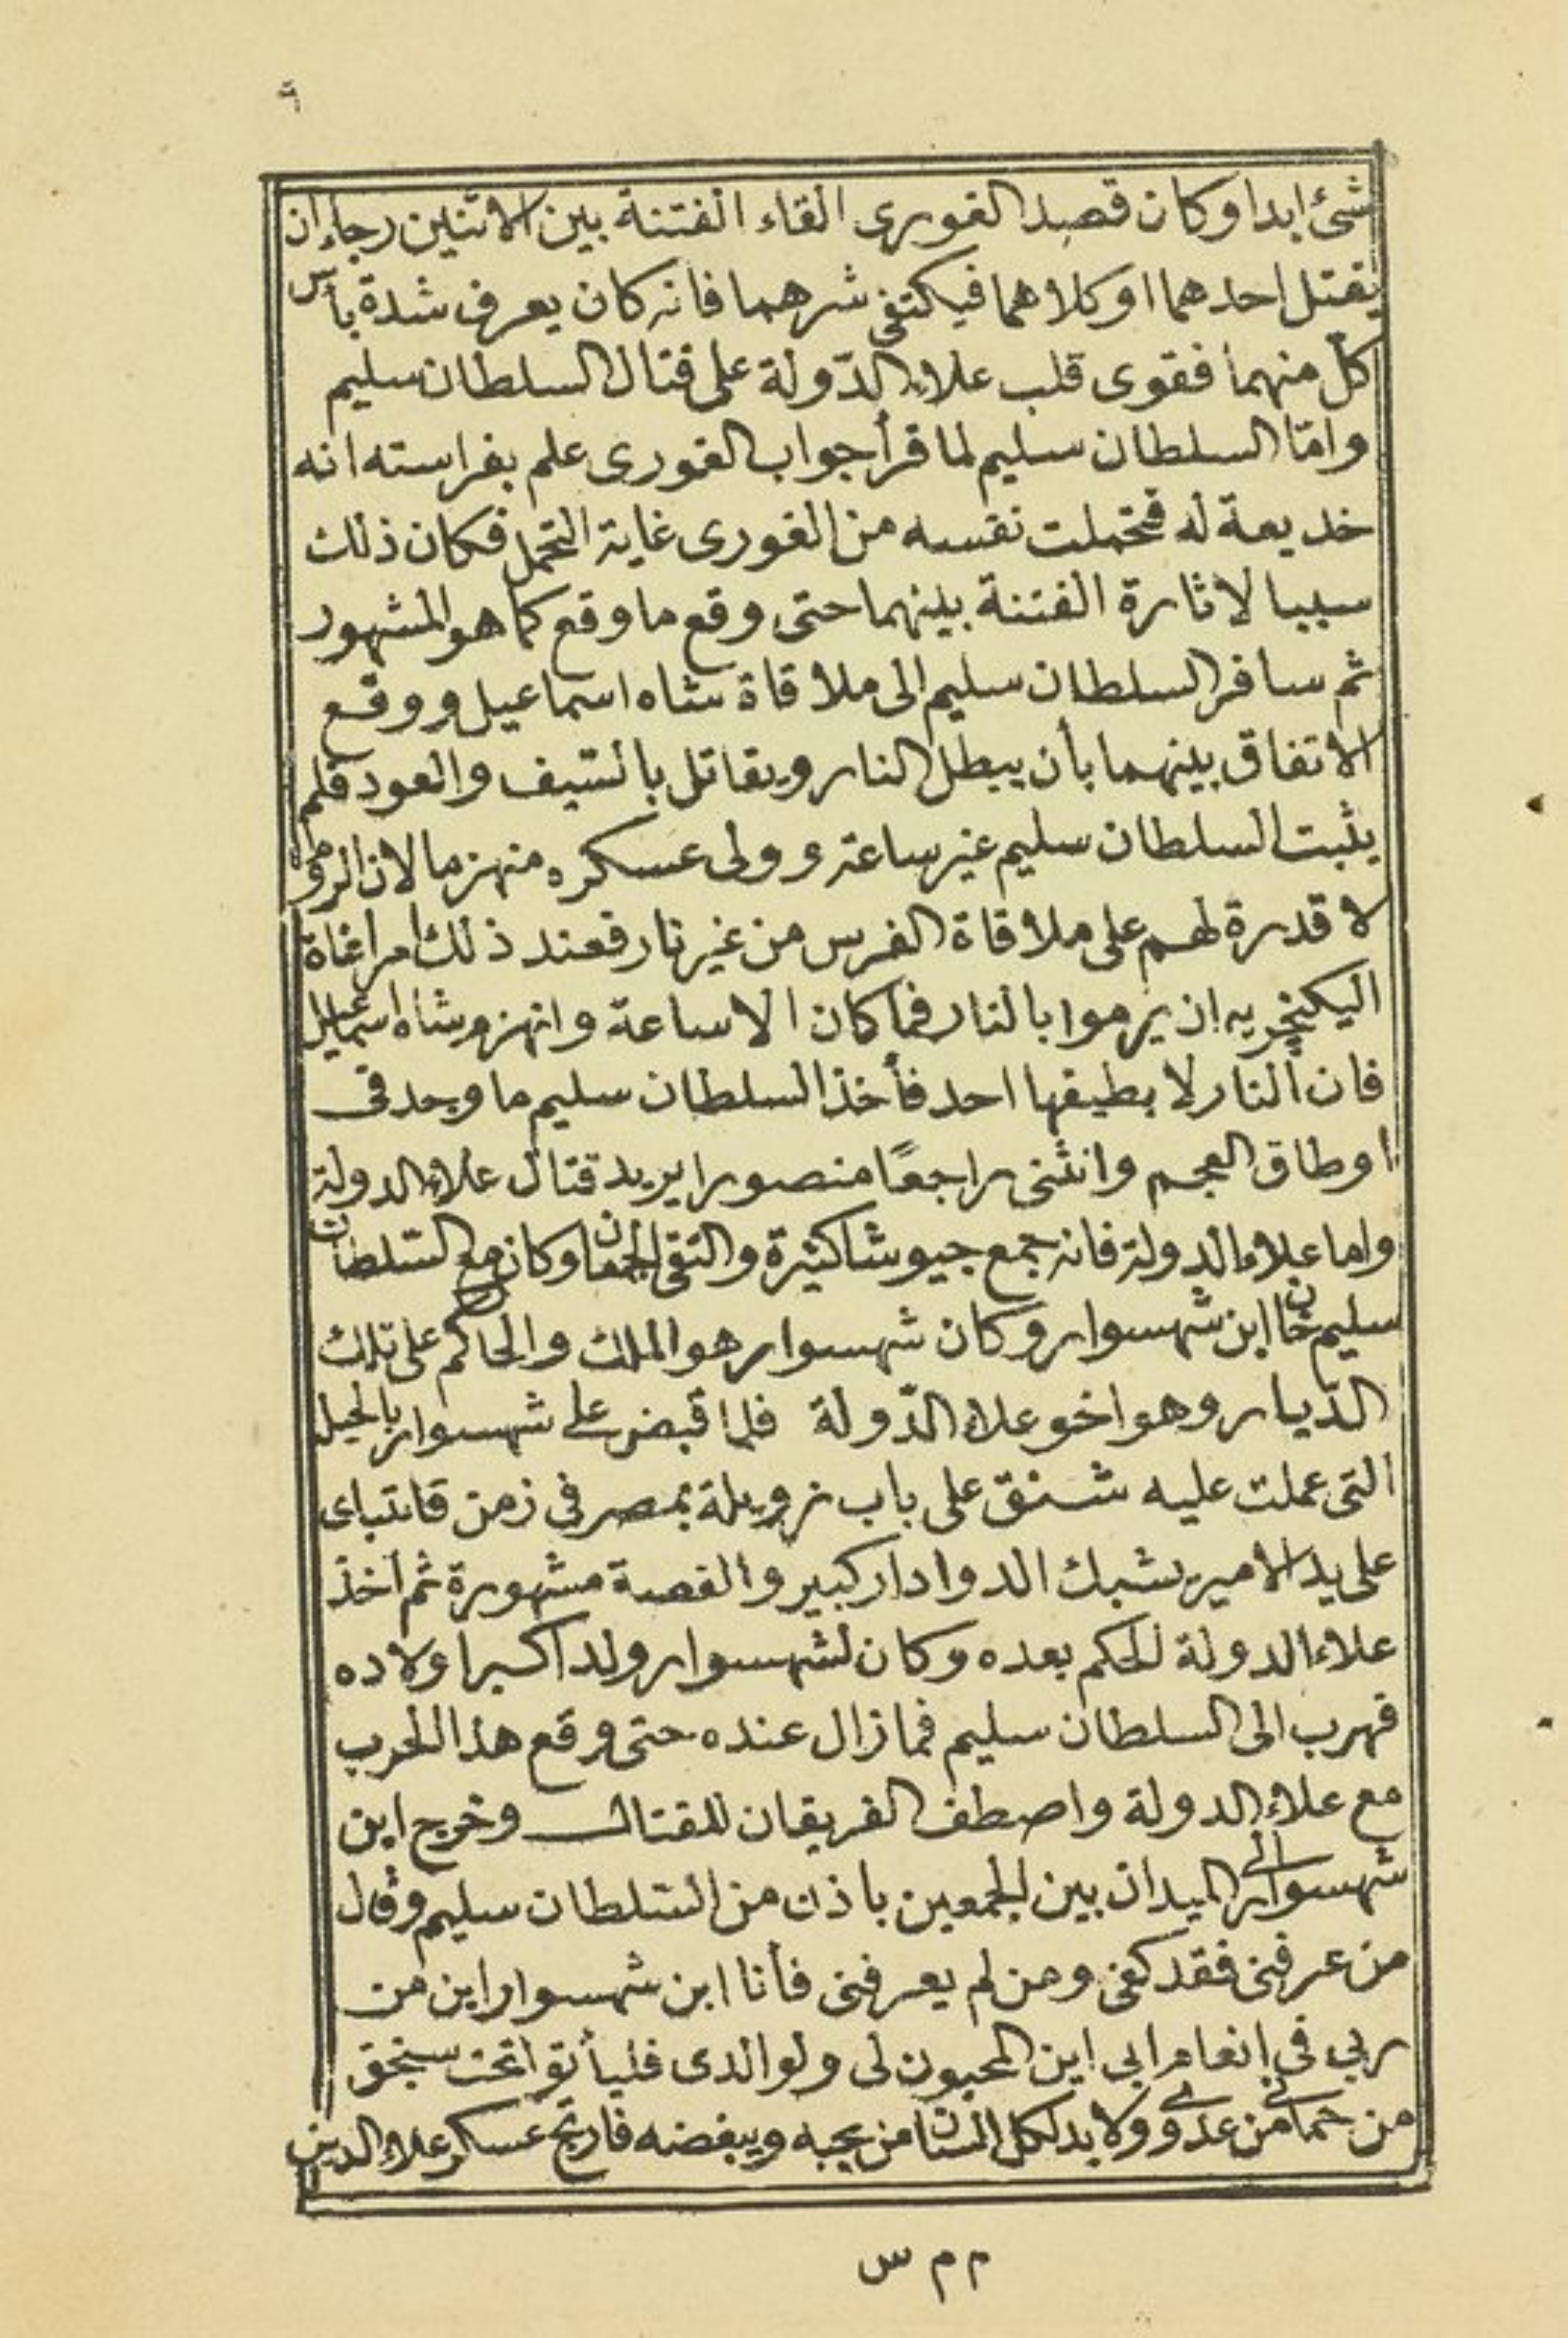 ٩
شئ ابدا وكان قصد الغورى القاء الفتنة بين الاثنين رجاء ان
يقتل احدهما او كلاهما فيكتفى شرهما فانه كان يعرف شدة بأس
كل منهما فقوى قلب علاء الدّولة على قتال السلطان سليم
وامّا السلطان سليم لما قرأ جواب الغورى علم بفراسته انه
خديعة له فتحملت نفسه من الغورى غاية التحمل فكان ذلك
سببا لاثارة الفتنة بينهما حتى وقع ما وقع كما هو المشهور
ثم سافر السلطان سليم الى ملاقاة شاه اسماعيل ووقع
الاتفاق بينهما بأن يبطل النار ويقاتل بالسّيف والعود فلم
يثبت السلطان سليم غير ساعة وولى عسكره منهزما لان الروم
لا قدرة لهم على ملاقاة الفرس من غير نار فعند ذلك امر اغاة
اليكنچريه ان يرموا بالنار فما كان الا ساعة وانهزم شاه اسماعيل
فان النار لا يطيقها احد فأخذ السلطان سليم ما وجد فى
اوطاق العجم وانثنى راجعًا منصورا يريد قتال علاء الدولة
واما علاء الدولة فانه جمع جيوشا كثيرة والتقى الجمعان وكان مع السّلطان
سليم خان ابن شهسوار وكان شهسوار هو الملك والحاكم على تلك
الدّيار وهو اخو علاء الدّولة فلما قبض على شهسوار بالحيل
التى عملت عليه شنق على باب زويلة بمصر فى زمن قايتباى
على يد الامير يشبك الدوادار كبير والقصة مشهورة ثم اخذ
علاء الدولة الحكم بعده وكان لشهسوار ولد اكبر اولاده
فهرب الى السلطان سليم فما زال عنده حتى وقع هذا الحرب
مع علاء الدولة واصطف الفريقان للقتال وخرج ابن
شهسوار الى الميدان بين الجمعين باذن من السّلطان سليم وقال
من عرفنى فقد كفى ومن لم يعرفنى فأنا ابن شهسوار اين من
ربى فى انعام ابى اين المحبون لى ولوالدى فليأتوا تحت سنجق
من حمانى من عدوى ولا بد لكل انسان من يحبه ويبغضه فارتج عسكر علاء الدين
م م س